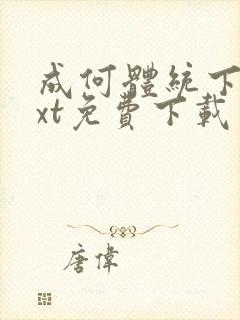 成何體統下
xt免費下載
唐偉